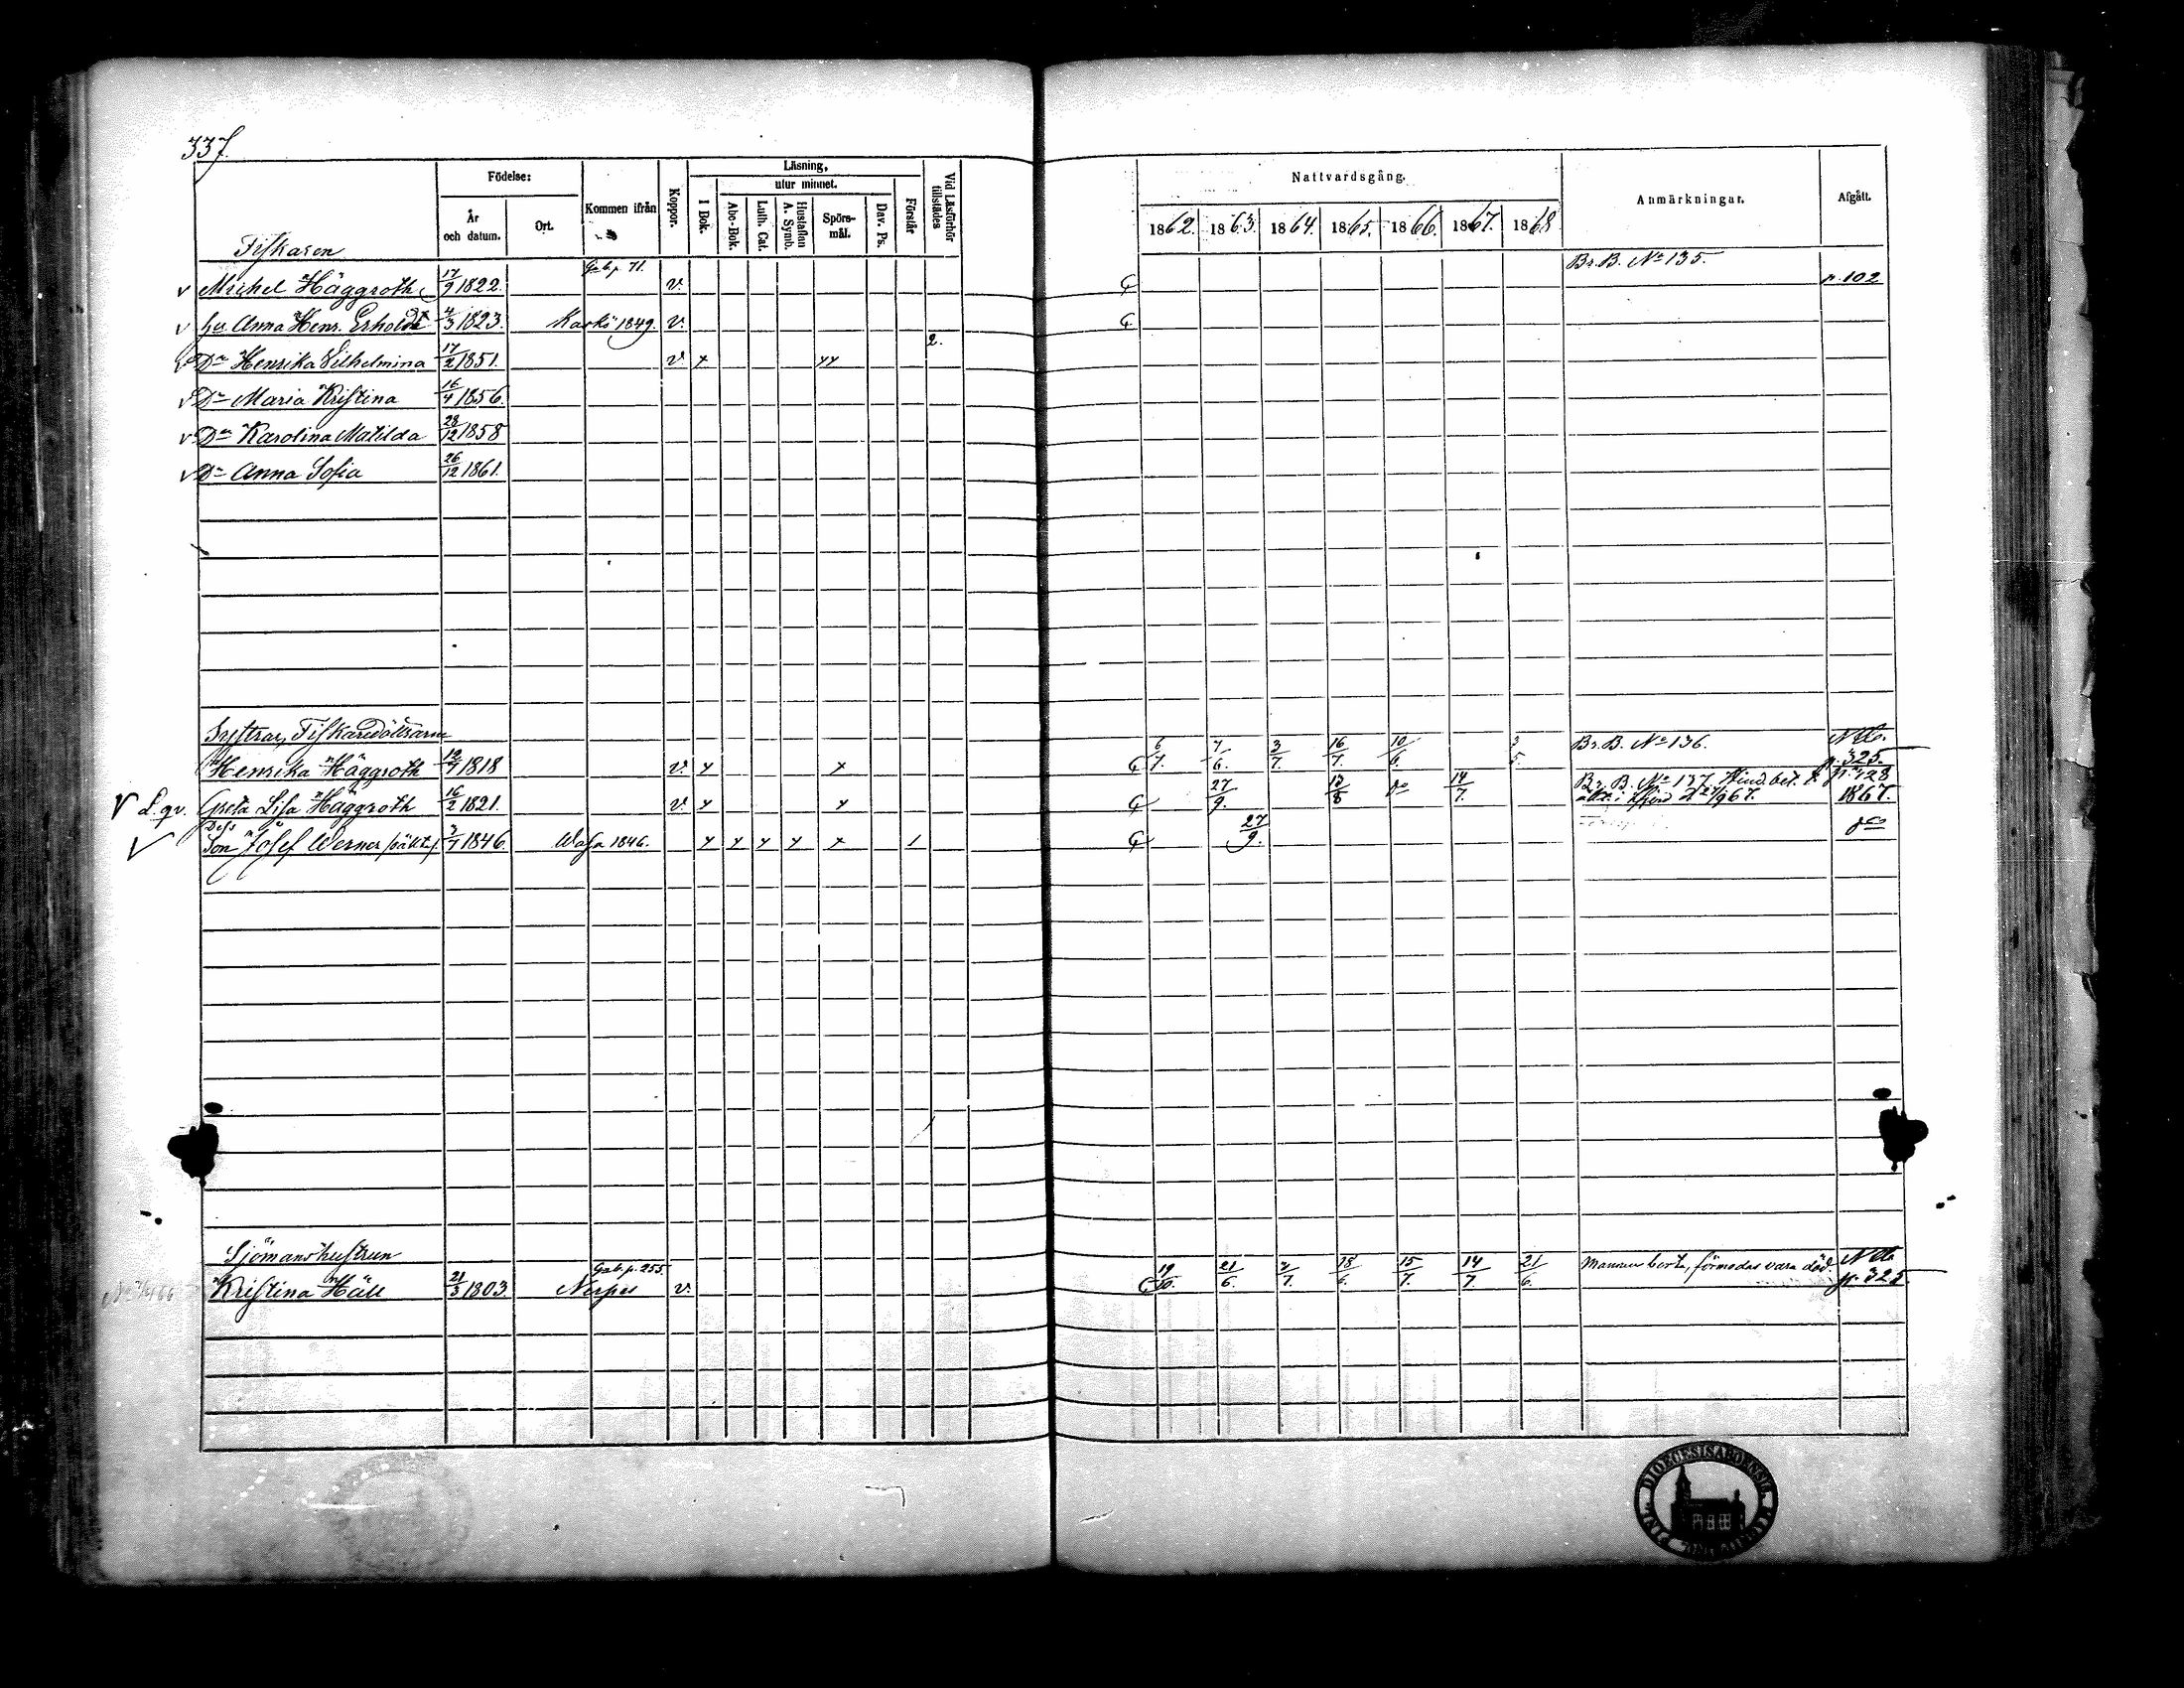 337.
Födelse: Kommen ifrån Koppor. Läsning, Vid Läsförhör tillstädes Nattvardsgång. Anmärkningar. Afgått.
År och datum. Ort. I Bok. utur minnet. Förstår
Abc-Bok. Luth. Cat. Hustaflan A. Symb. Spörs-mål. Dav. Ps.
1862. 1863. 1864. 1865. 1866. 1867. 1868
Fiskaren Br. B. No 135.
v Michel Häggroth 17/9 1822. Gab. p. 71. v. p. 102
v hu. Anna Henr. 4/3 1823. Kaskö 1849. v.
Dr Henrika Vilhelmina 17/2 1851. v. x xx 2.
v Dr Maria Kristina 16/4 1856.
v Dr Karolina Matilda 28/12 1858
v Dr Anna Sofia 26/12 1861.
Systrar, Fiskaredöttrarne
Henrika Häggroth 12/7 1818 v. x x 6/7. 7/6. 3/7. 16/7. 10/6. 3/5. Br. B. No 136. p. 325.
V L. qv. Greta Lisa Häggroth 16/2 1821. v. x x 27/9. 13/8 do 14/7. Br. B. No 137. p. 128 1867.
V Dess Son Josef Werner 3/7 1846. Wasa 1846. x x x x x 1 27/9. do
Sjömanshustrun
Kristina Häll 21/3 1803. Gab. p. 255. Nerpes v. 19/10. 21/6. 3/7. 18/6. 15/7. 14/7. 21/6. Mannen borta, förmodas vara död. p. 325.
DIOECESIS ABOENSIS